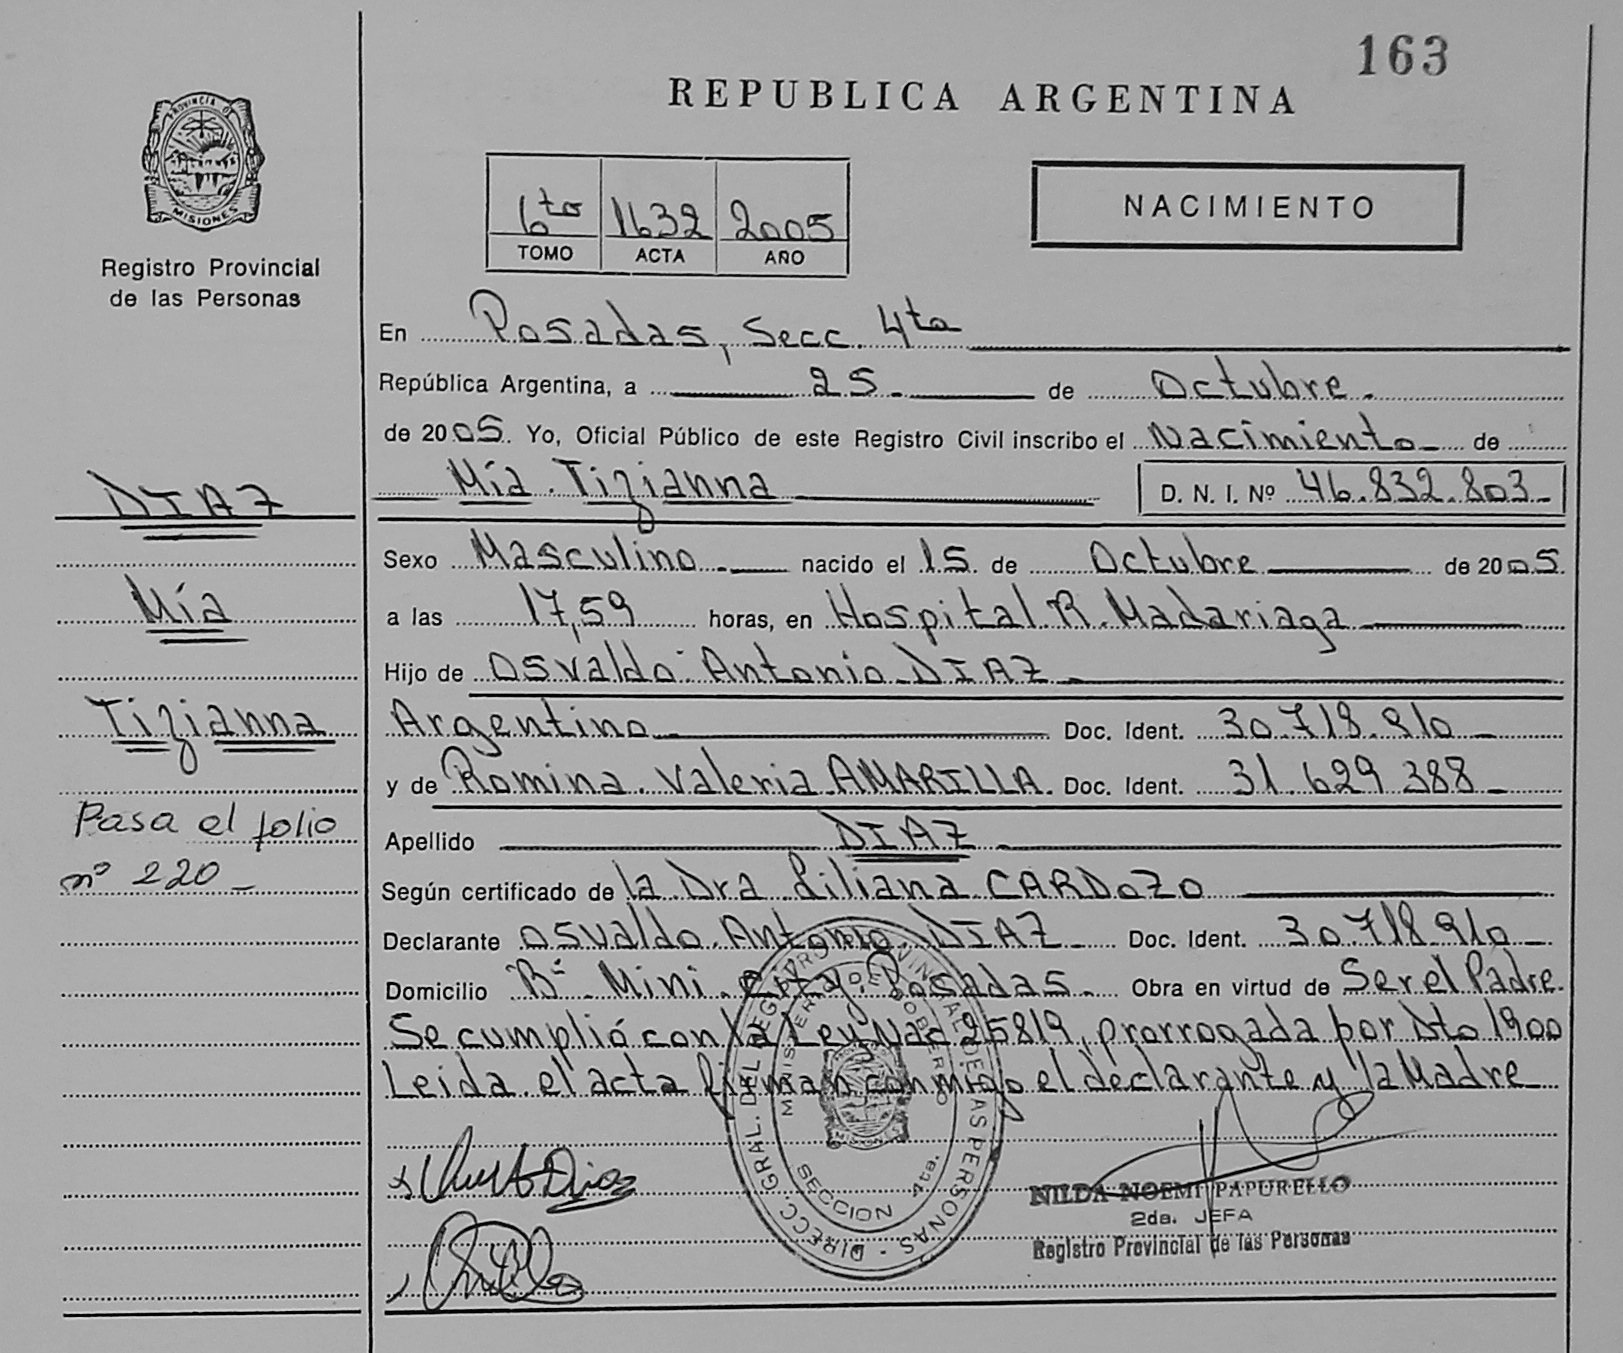 163
REPUBLICA ARGENTINA
PROVINCIA DE
MISIONES
Registro Provincial
de las Personas
6to 1632 2005
TOMO ACTA AÑO
NACIMIENTO
En Posadas, Secc. 4ta
República Argentina, a 25 de Octubre.
de 2005. Yo, Oficial Público de este Registro Civil inscribo el Nacimiento de
Mía Tizianna D. N. I. Nº 46.832.803
Sexo Masculino nacido el 15 de Octubre de 2005.
a las 17,59 horas, en Hospital R. Madariaga
Hijo de Osvaldo Antonio DIAZ
Argentino Doc. Ident. 30.718.910
y de Romina Valeria AMARILLA. Doc. Ident. 31.629.388
Apellido DIAZ
Según certificado de la Dra Liliana CARDOZO
Declarante Osvaldo Antonio DIAZ Doc. Ident. 30.718.910
Domicilio Bº Mini City Posadas Obra en virtud de Ser el Padre.
Se cumplió con la Ley Nac 25819, prorrogada por Dto 1900
Leida el acta Firman conmigo el declarante y la Madre
DIAZ
Mía
Tizianna
Pasa el folio
nº 220
DIRECC. GRAL. DEL REGISTRO PROVINCIAL DE LAS PERSONAS
MINISTERIO DE GOBIERNO
MISIONES
SECCION 4ta.
Diaz
NILDA NOEMI PAPURELLO
2da. JEFA
Registro Provincial de las Personas